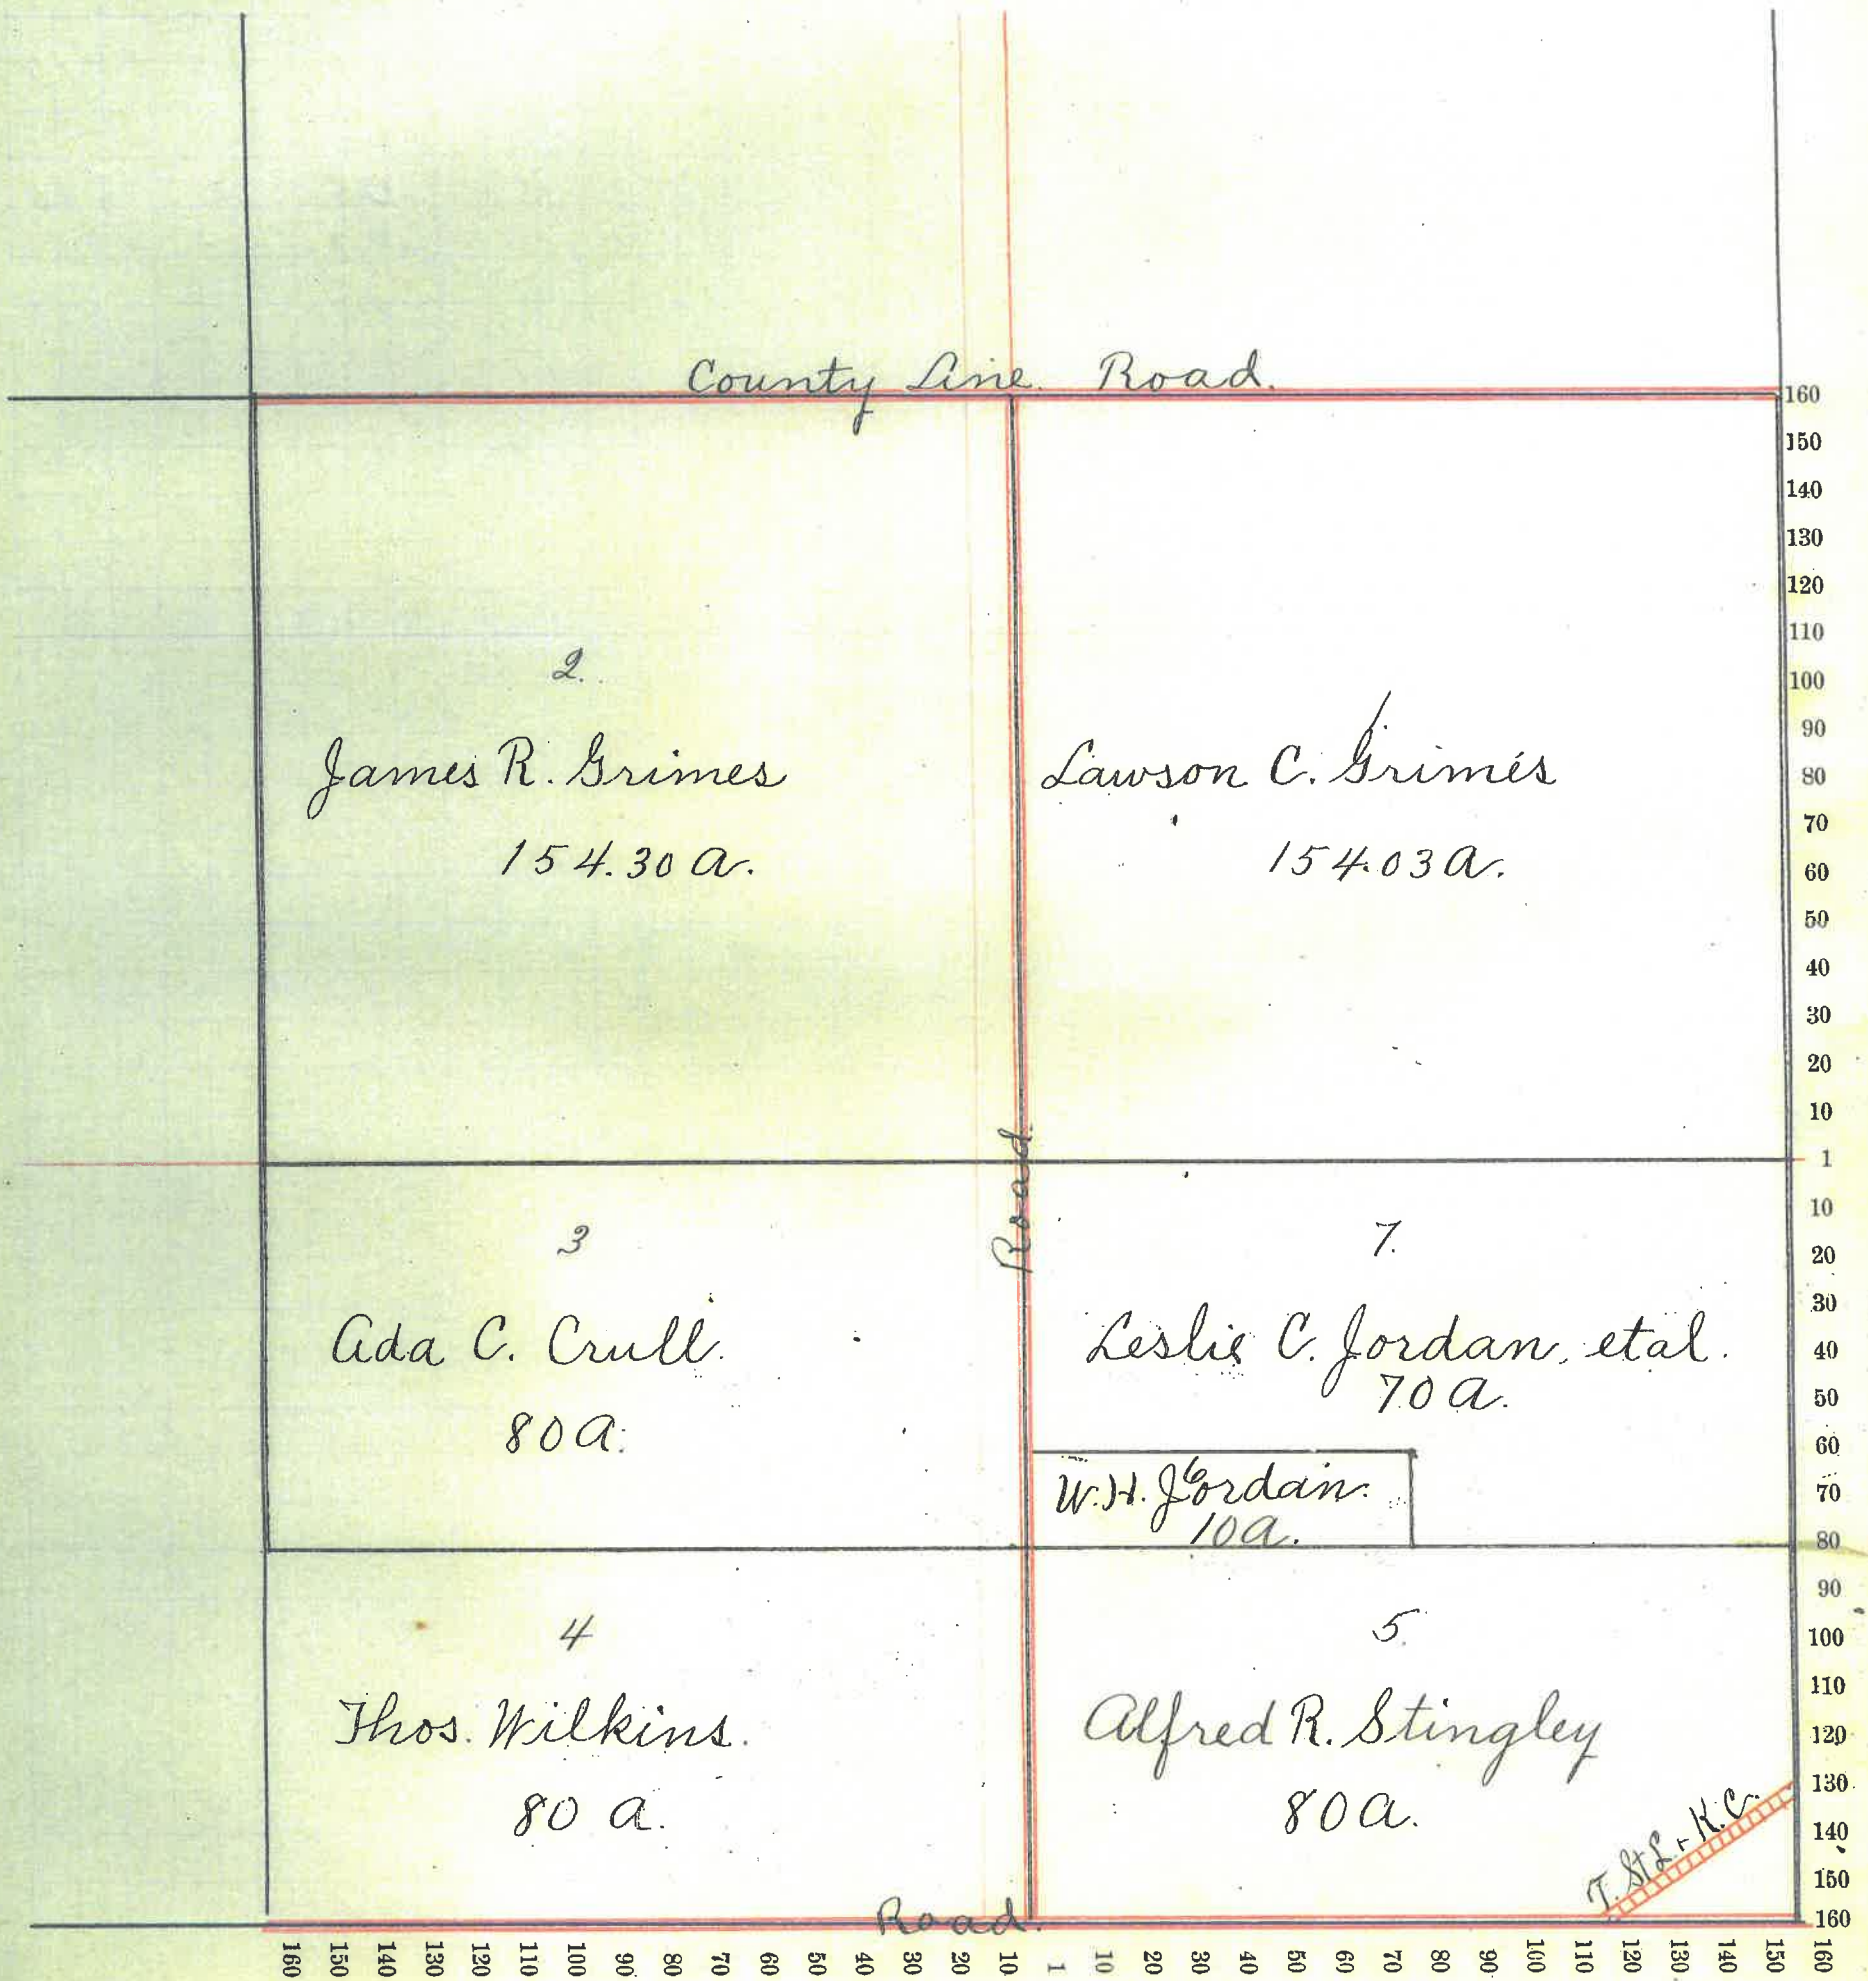 County Line. Road.
2.
James R. Grimes
154.30 a.
1
Lawson C. Grimes
154.03 a.
Road.
3
Ada C. Crull.
80 a.
7.
Leslie C. Jordan, et al.
70 a.
6
W. H. Jordan.
10 a.
4
Thos. Wilkins.
80 a.
5.
Alfred R. Stingley
80 a.
T. St L. & K. C.
Road.
160
150
140
130
120
110
100
90
80
70
60
50
40
30
20
10
1
10
20
30
40
50
60
70
80
90
100
110
120
130
140
150
160
160 150 140 130 120 110 100 90 80 70 60 50 40 30 20 10 1 10 20 30 40 50 60 70 80 90 100 110 120 130 140 150 160